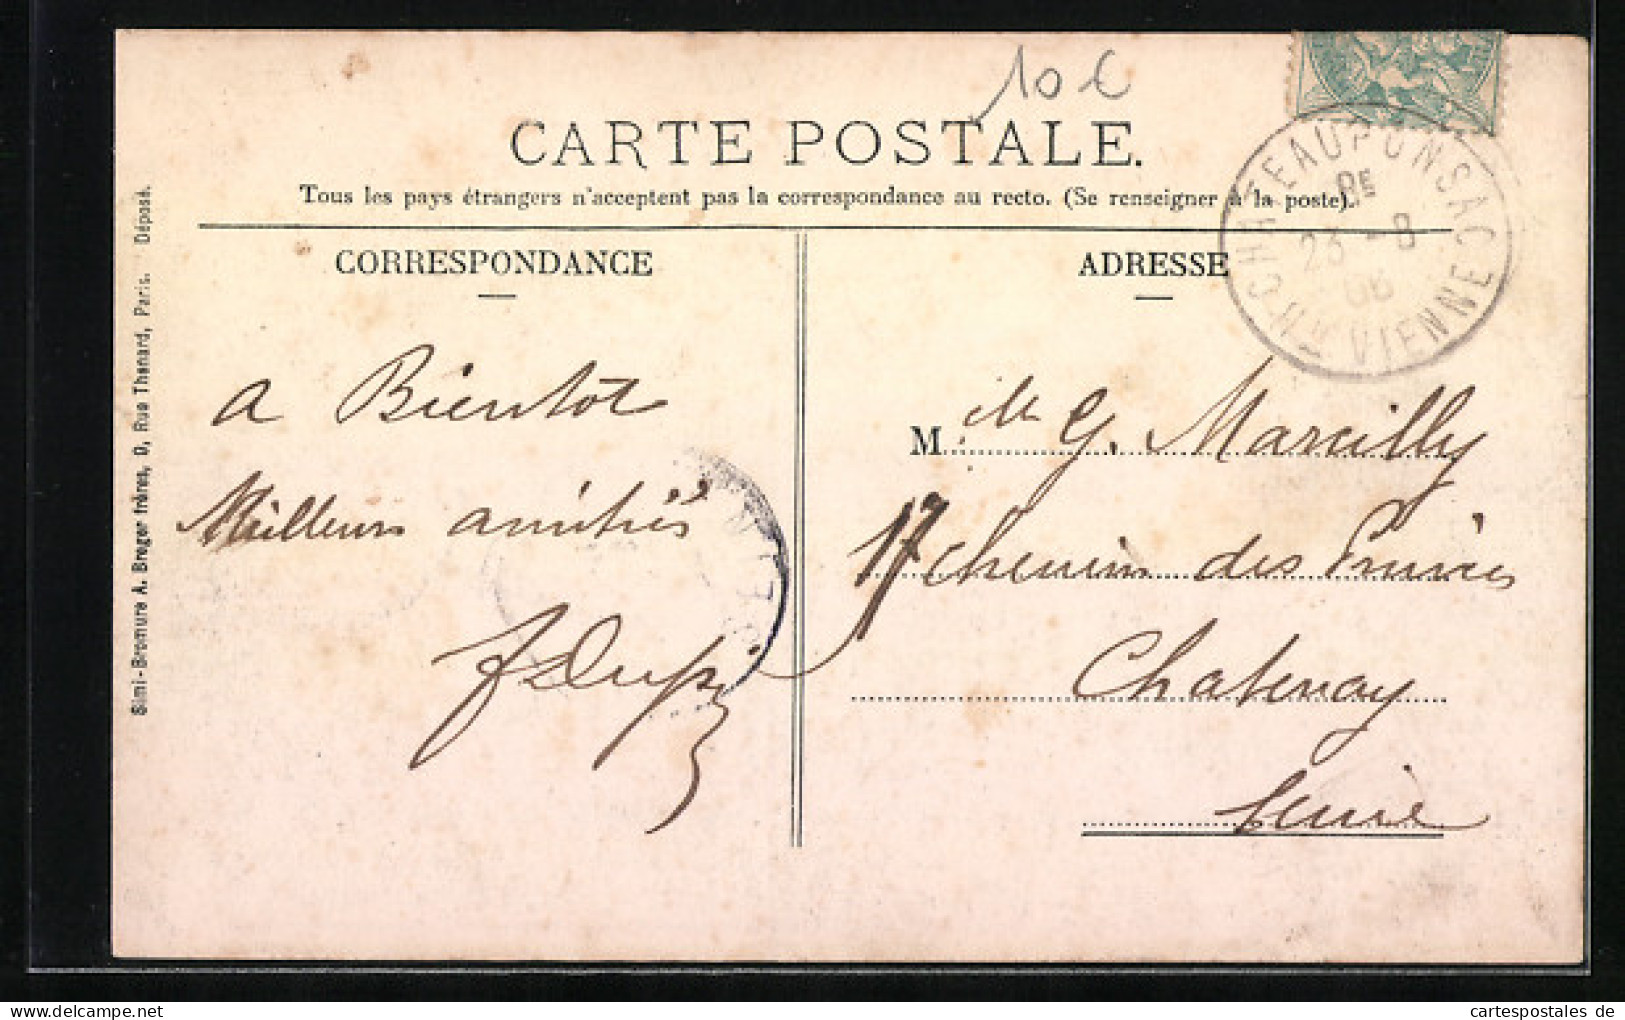 10 €
CARTE POSTALE.
Tous les pays étrangers n'acceptent pas la correspondance au recto. (Se renseigner à la poste).
CHATEAUPONSAC
RE
23 - 8
06
HTE VIENNE
CORRESPONDANCE
a Bientôt
Meilleurs amitiés
ADRESSE
M.elle G. Marcilly
17 chemin des
Chatenay
Seine
Simi-Bromure A. Breger frères, 9, Rue Thenard, Paris. Déposé.
cartespostales de